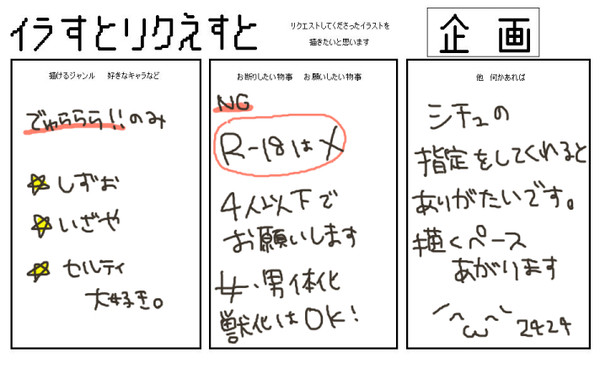 イラすとリクえすと
リクエストしてくださったイラストを
描きたいと思います
企画
描けるジャンル 好きなキャラなど
でゅららら!!のみ
しずお
いざや
セルティ
大好き。
お断りしたい物事 お願いしたい物事
NG
R-18はX
4人以下で
お願いします
女・男体化
獣化はOK!
他 何かあれば
シチュの
指定をしてくれると
ありがたいです。
描くペース
あがります
^ω^ 2424